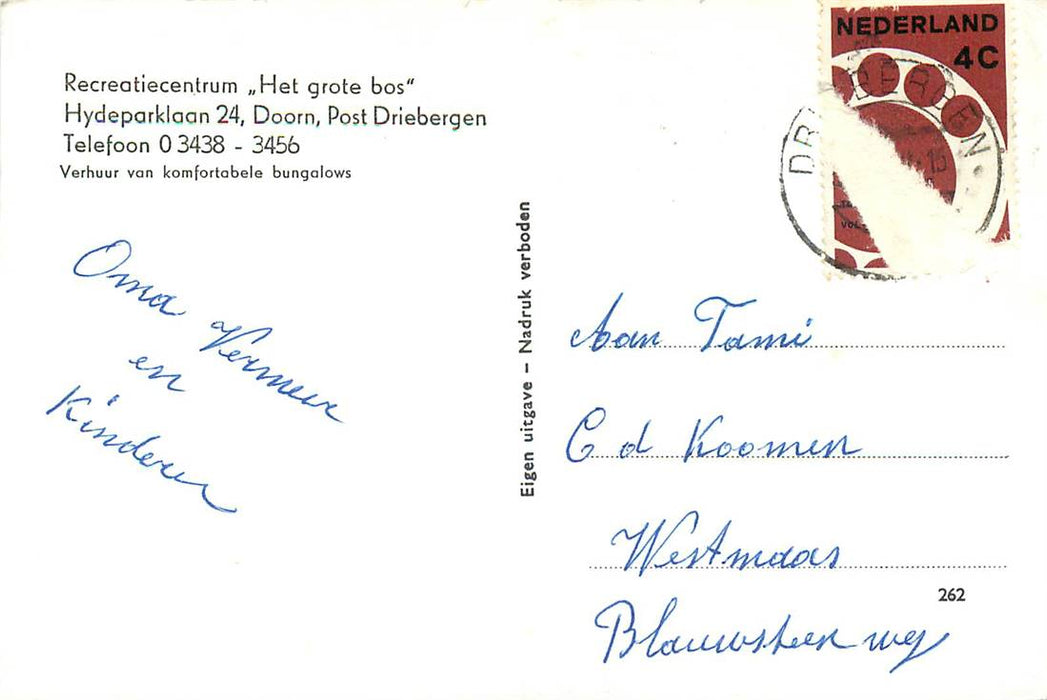 Recreatiecentrum „Het grote bos"
Hydeparklaan 24, Doorn, Post Driebergen
Telefoon 0 3438 - 3456
Verhuur van komfortabele bungalows
Oma Vermeer
en
Kinderen
Eigen uitgave – Nadruk verboden
NEDERLAND
4C
Aan Tami
C d Koomen
Westmaas
262
Blauwsteenweg